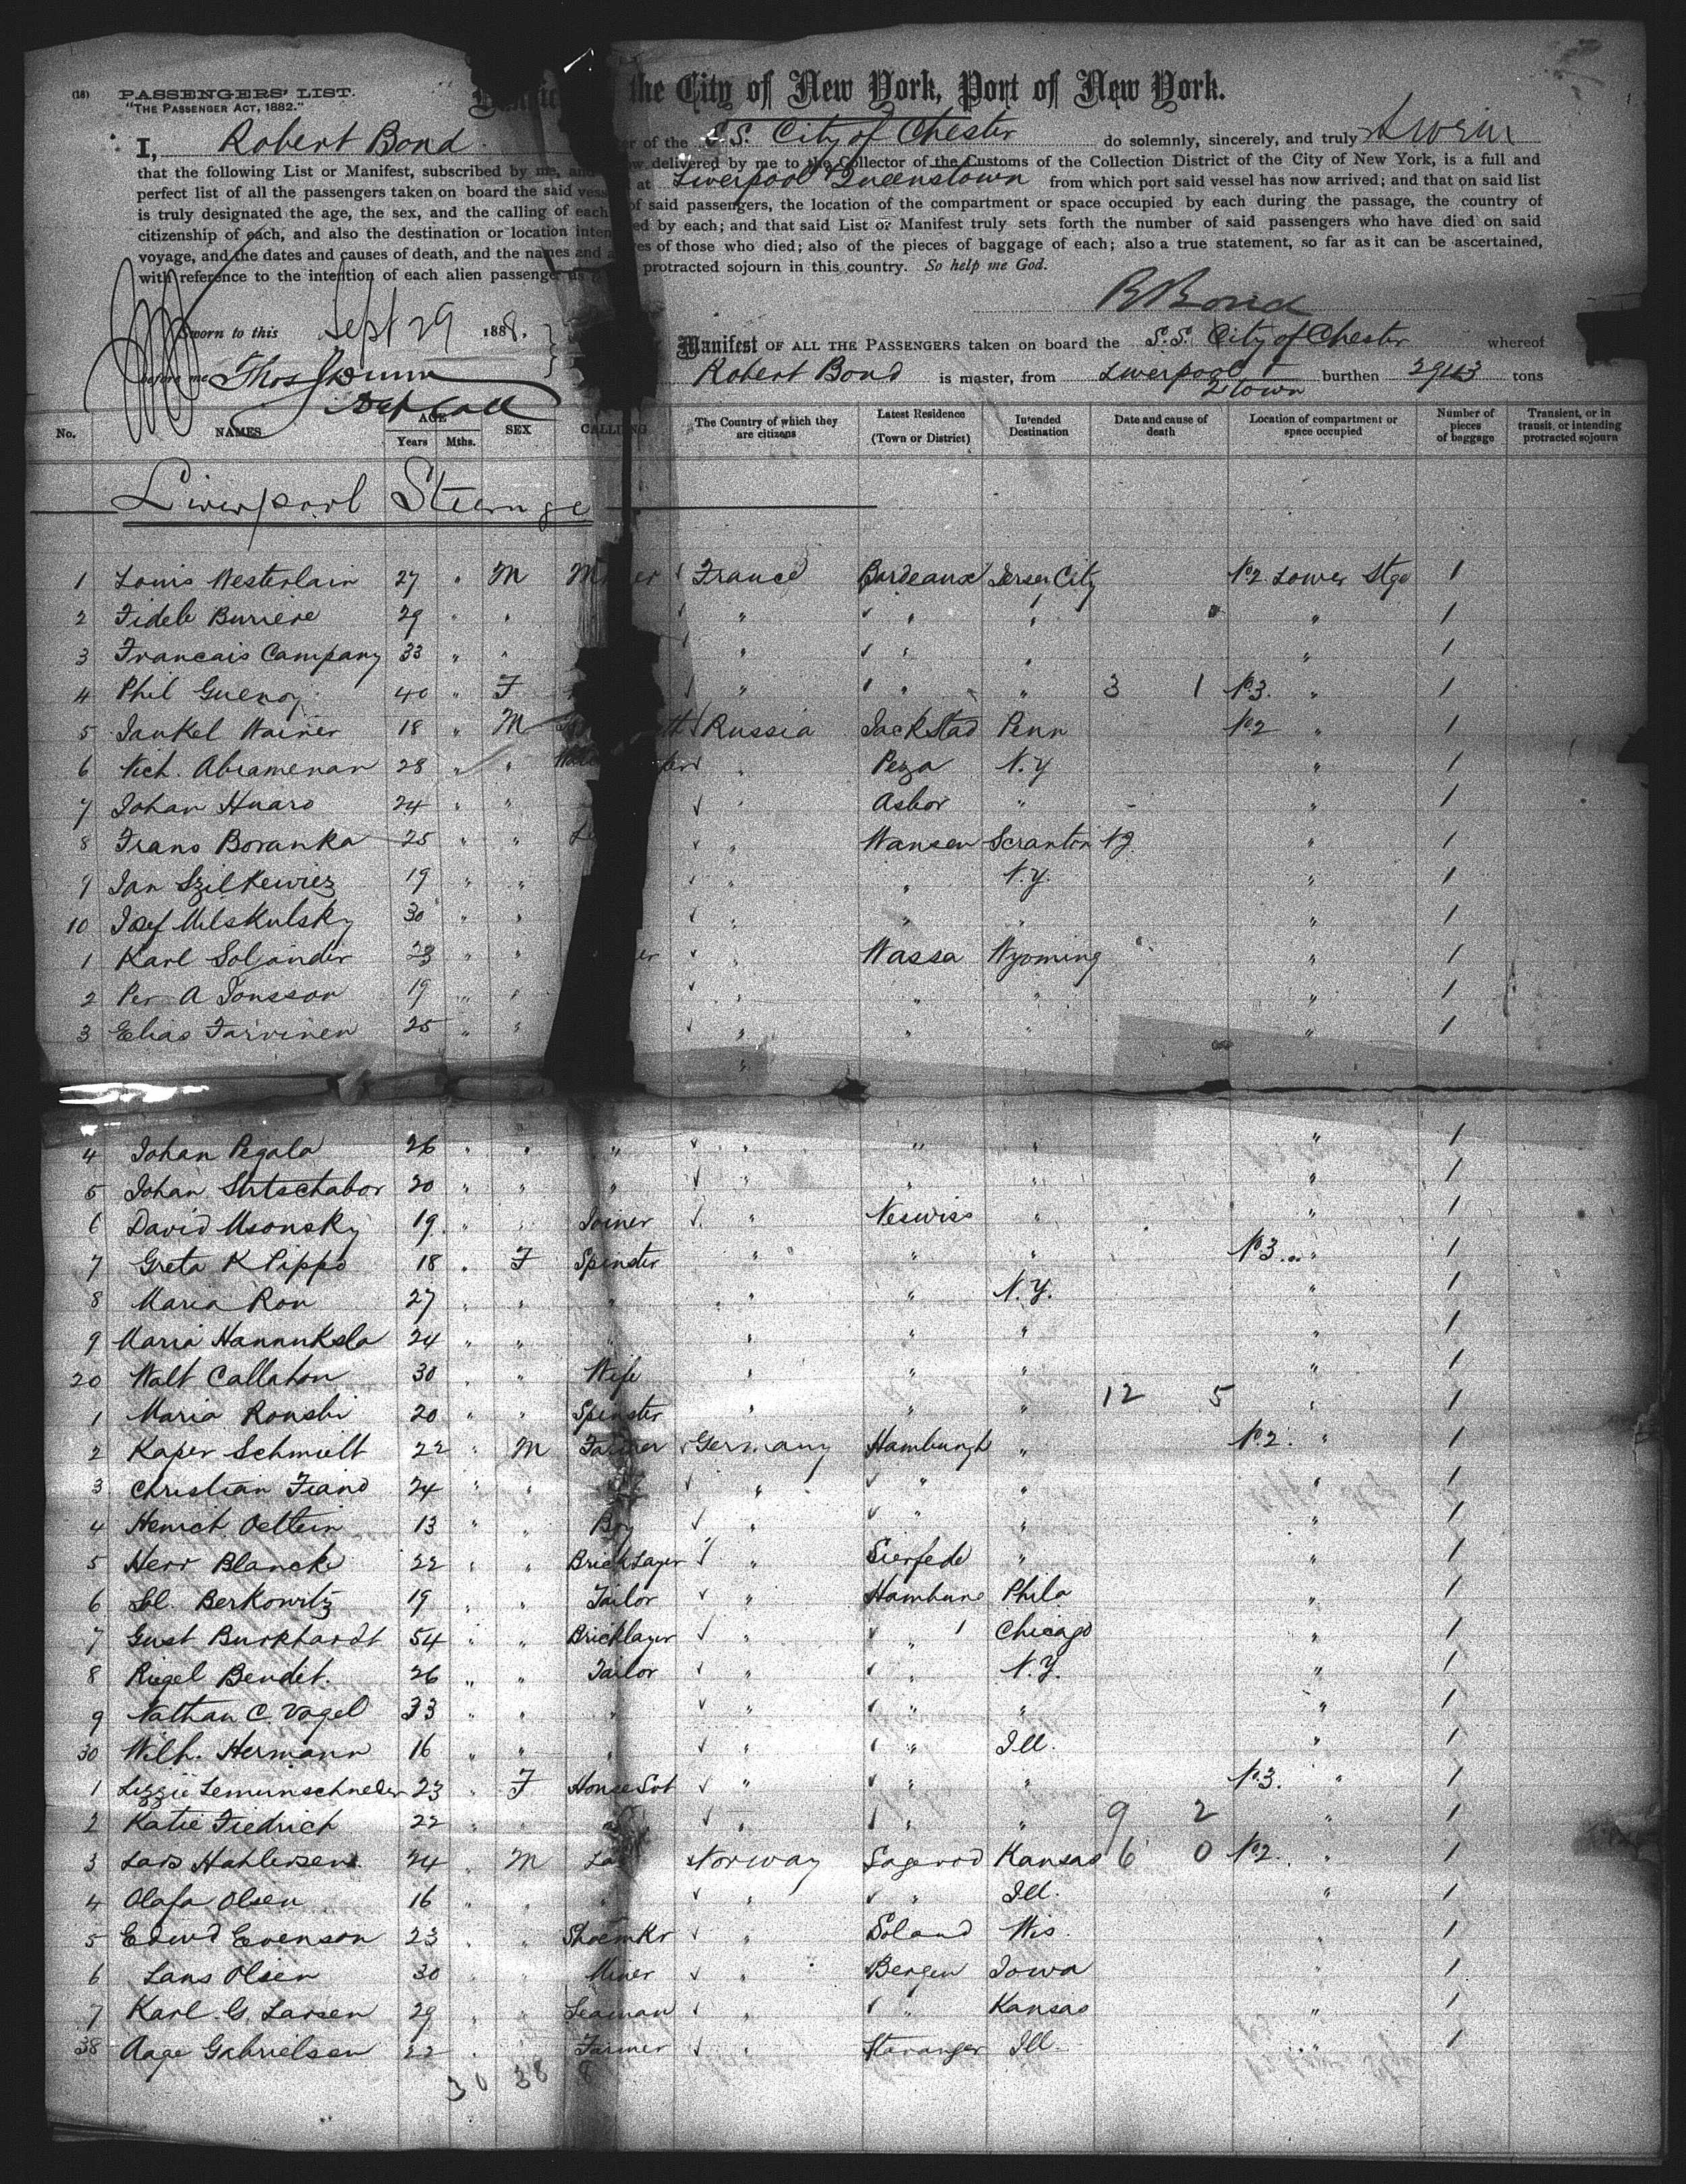 (18) PASSENGERS' LIST.
"THE PASSENGER ACT, 1882."
the City of New York, Port of New York.
I, Robert Bond of the S.S. City of Chester do solemnly, sincerely, and truly swear
that the following List or Manifest, subscribed by me, and delivered by me to the Collector of the Customs of the Collection District of the City of New York, is a full and
perfect list of all the passengers taken on board the said at Liverpool & Queenstown from which port said vessel has now arrived; and that on said list
is truly designated the age, the sex, and the calling of each of said passengers, the location of the compartment or space occupied by each during the passage, the country of
citizenship of each, and also the destination or location by each; and that said List or Manifest truly sets forth the number of said passengers who have died on said
voyage, and the dates and causes of death, and the names and of those who died; also of the pieces of baggage of each; also a true statement, so far as it can be ascertained,
with reference to the intention of each alien passenger protracted sojourn in this country. So help me God.
R Bond
Sworn to this Sept 29 1888.
before me Thos
Manifest OF ALL THE PASSENGERS taken on board the S.S. City of Chester whereof
Robert Bond is master, from Liverpool Qtown burthen 2943 tons
No. NAMES AGE Years Mths. SEX CALLING The Country of which they are citizens Latest Residence (Town or District) Intended Destination Date and cause of death Location of compartment or space occupied Number of pieces of baggage Transient, or in transit, or intending protracted sojourn
Liverpool Steerage
1 Louis Westerlain 27 " M France Bordeaux Jersey City No 2 Lower Stge 1
2 Fidele Burriere 29 " " " " " " 1
3 Francais Company 33 " " " " " " 1
4 Phil Guenoy 40 " F " " " 3 1 No 3. " 1
5 Jankel Wainer 18 " M Russia Jackstad Penn No 2 " 1
6 Nich. Abramenan 28 " " " Peza N.Y " 1
7 Johan Huaro 24 " " " Asbor " " 1
8 Frans Boranka 25 " " " Wansen Scranton NJ. " 1
9 Jan Szilkewiez 19 " " " " N.Y. " 1
10 Josef Milskulsky 30 " " " " " " 1
1 Karl Soljander 23 " " " Wassa Wyoming " 1
2 Per A Jonsson 19 " " " " " " 1
3 Elias Farvinen 25 " " " " " " 1
4 Johan Pegala 26 " " " " " " " 1
5 Johan Shtschabor 20 " " " " " " " 1
6 David Msonsky 19 " " Joiner " Neswiss " " 1
7 Greta K Pippo 18 " F Spinster " " " No 3 " 1
8 Maria Ron 27 " " " " " N.Y. " 1
9 Maria Hannuksla 24 " " " " " " " 1
20 Walt Callahon 30 " " Wife " " " " 1
1 Maria Ronshi 20 " " Spinster " " " 12 5 " 1
2 Kaper Schmielt 22 " M Farmer Germany Hamburgh " No 2. " 1
3 Christian Fiand 24 " " " " " " 1
4 Henrich Oeltein 13 " " Boy " " " " 1
5 Herr Blancke 22 " " Bricklayer " Sierfede " " 1
6 Sol. Berkowitz 19 " " Tailor " Hamburg Phila " 1
7 Gust Burkhardt 54 " " Bricklayer " " Chicago " 1
8 Riegel Bendet. 26 " " Tailor " " N.Y. " 1
9 Nathan C. Vogel 33 " " " " " " " 1
30 Wilh. Hermann 16 " " " " " Ill. " 1
1 Lizzie Lemunschneder 23 " F House Svt " " " No 3. " 1
2 Katie Fiedrich 22 " " " " " 9 2 " 1
3 Lars Hahlersen 24 " M Norway Sogerod Kansas 6 0 No 2. " 1
4 Olafa Olsen 16 " " " " " Ill. " 1
5 Edwd Evenson 23 " " Shoemkr " Soland Wis. 1
6 Lans Olsen 30 " " Miner " Bergen Iowa " 1
7 Karl. G. Larsen 29 " " Seaman " " Kansas " 1
38 Aage Gabrielsen 22 " " Farmer " Stavanger Ill. " 1
30 38 8